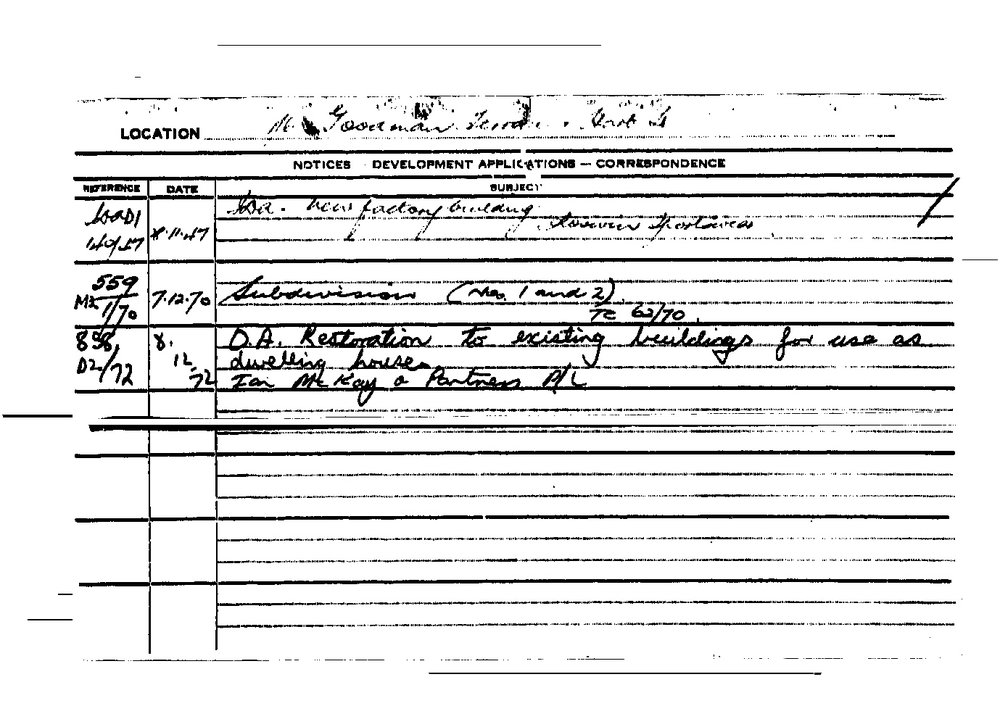 LOCATION Goodman
NOTICES DEVELOPMENT APPLICATIONS — CORRESPONDENCE
REFERENCE DATE SUBJECT
new factory building
8.11.47
559 7.12.70 Subdivision (Nos. 1 and 2)
1/70 TC 62/70.
858, 8. D.A. Restoration to existing buildings for use as
D2/72 12. dwelling house.
72 Ian McKay & Partners P/L